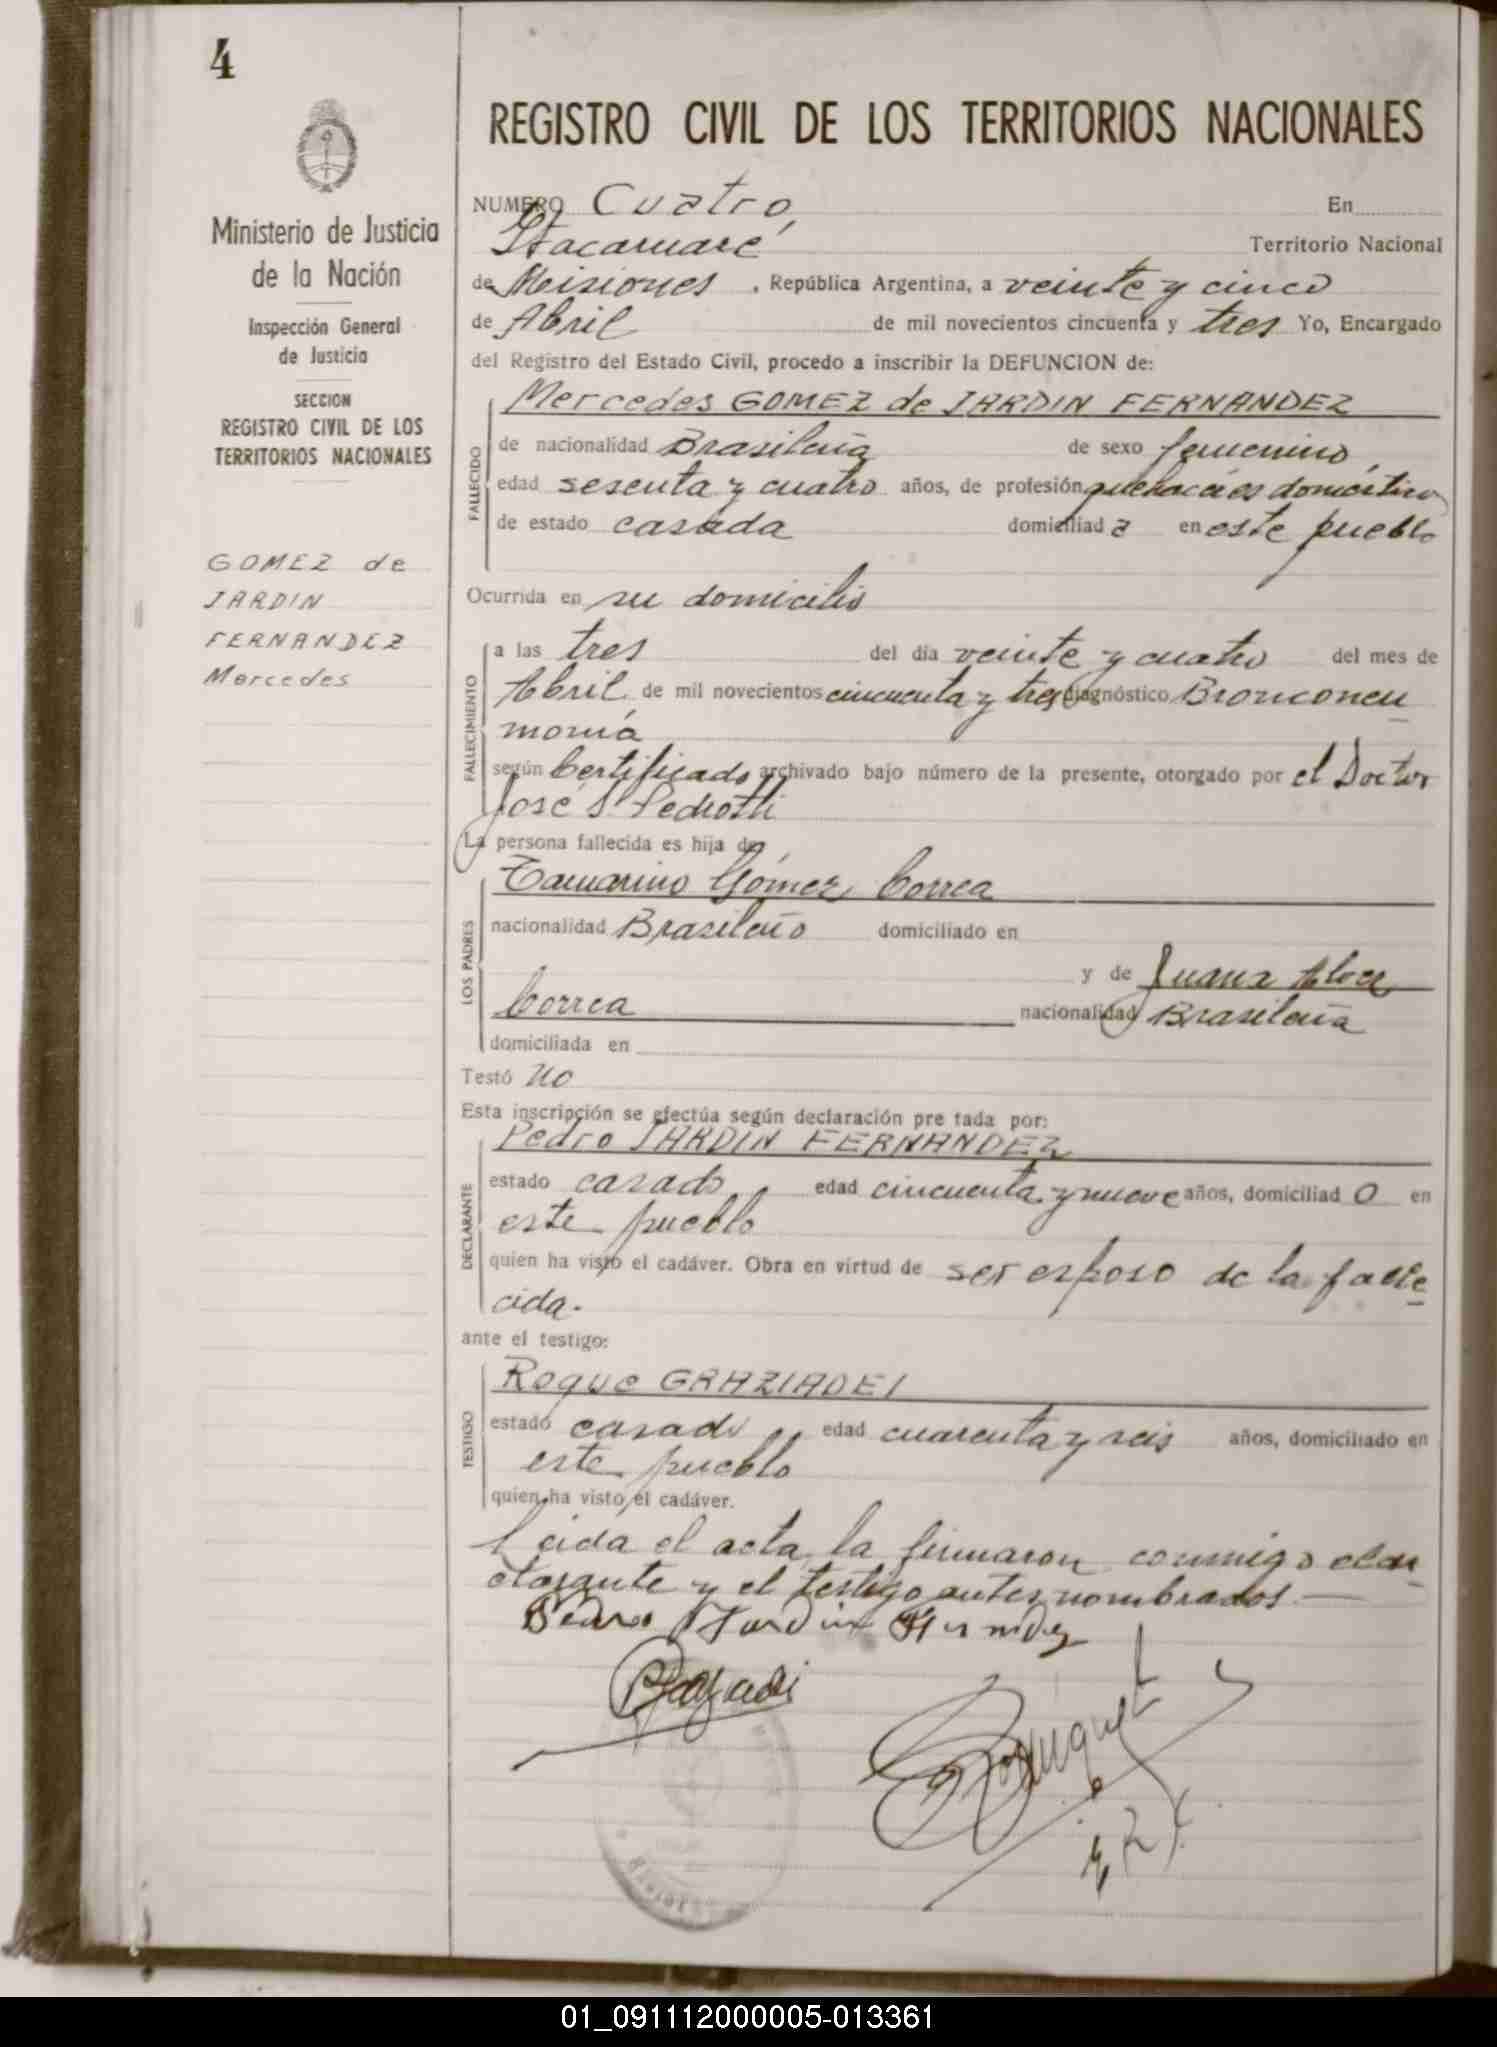 4
Ministerio de Justicia
de la Nación
Inspección General
de Justicia
SECCION
REGISTRO CIVIL DE LOS
TERRITORIOS NACIONALES
GOMEZ de
JARDIN
FERNANDEZ
Mercedes
REGISTRO CIVIL DE LOS TERRITORIOS NACIONALES
NUMERO Cuatro, En
Itacaruaré Territorio Nacional
de Misiones, República Argentina, a veinte y cinco
de Abril de mil novecientos cincuenta y tres Yo, Encargado
del Registro del Estado Civil, procedo a inscribir la DEFUNCION de:
FALLECIDO
Mercedes GOMEZ de JARDIN FERNANDEZ
de nacionalidad Brasileña de sexo femenino,
edad sesenta y cuatro años, de profesión quehaceres domésticos
de estado casada domiciliad a en este pueblo
Ocurrida en su domicilio
FALLECIMIENTO
a las tres del día veinte y cuatro del mes de
Abril de mil novecientos cincuenta y tres diagnóstico Bronconeu
monía
según Certificado archivado bajo número de la presente, otorgado por el Doctor
José S. Pedrotti
La persona fallecida es hija de
LOS PADRES
Gómez Correa
nacionalidad Brasileño domiciliado en
y de Juana
Correa nacionalidad Brasileña
domiciliada en
Testó no
Esta inscripción se efectúa según declaración pre tada por:
DECLARANTE
Pedro JARDIN FERNANDEZ
estado casado, edad cincuenta y nueve años, domiciliad o en
este pueblo
quien ha visto el cadáver. Obra en virtud de ser esposo de la falle
cida.
ante el testigo:
TESTIGO
Roque GRAZIADEI
estado casado, edad cuarenta y seis años, domiciliado en
este pueblo
quien ha visto el cadáver.
Leida el acta, la firmaron conmigo el de
clarante y el testigo antes nombrados.—
Pedro Jardin Fernandez
01_091112000005-013361